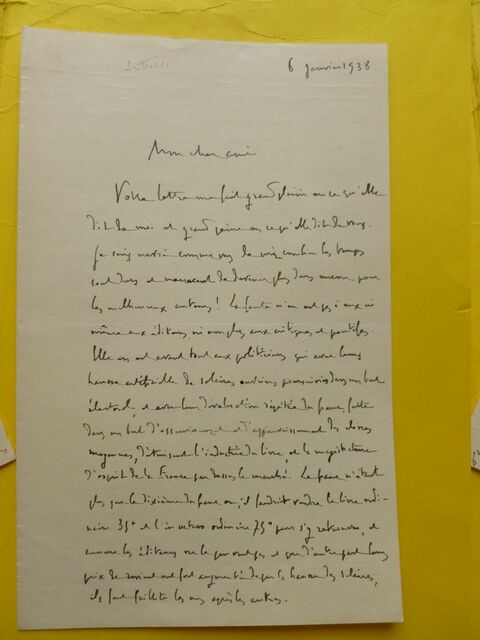 6 janvier 1938
Mon cher ami
Votre lettre me fait grand plaisir en ce qu'elle
dit de moi et grand peine en ce qu'elle dit de vous.
Je suis navré comme vous de voir combien les temps
sont durs et menacent de devenir plus durs encore pour
les malheureux auteurs ! La faute n'en est pas à eux ni
même aux éditeurs ni non plus aux critiques et
Elle en est avant tout aux politiciens, qui avec leurs
hausse artificielle de salaires ouvriers poursuivie dans un but
électoral, et avec leur dévaluation répétée du franc, faite
dans un but d'asservissement et d'appauvrissement des classes
moyennes, détruisent l'industrie du livre et la magistrature
d'esprit de la France par dessus le marché. Le franc n'étant
plus que le dixième du franc or, il faudrait vendre le livre ordi-
naire 35 et l'in octavo ordinaire 75 pour s'y retrouver, et
comme les éditeurs ne le peuvent pas et que d'autre part leurs
prix de revient ont fort augmenté depuis la hausse des salaires,
ils font faillite les uns après les autres.